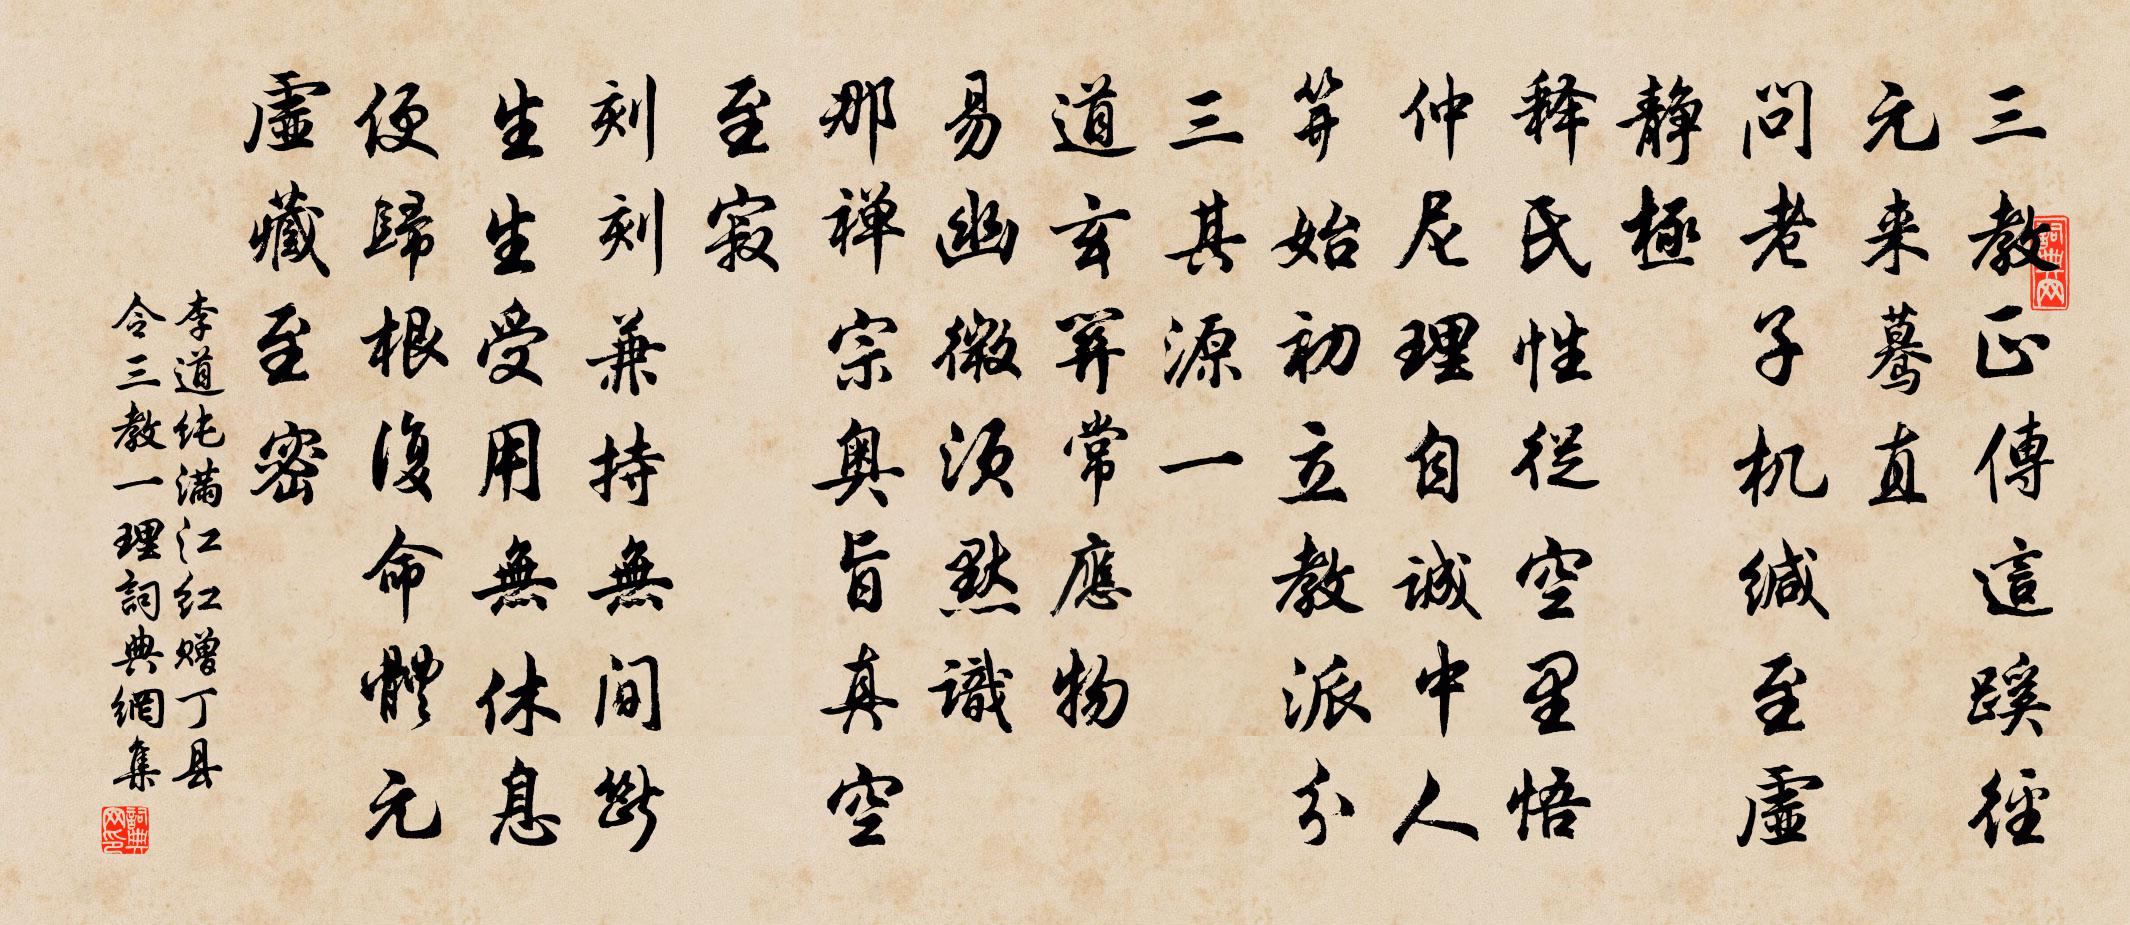 三教正傳這蹊徑
元来驀直
問老子机缄至虛
静極
释氏性從空里悟
仲尼理自诚中人
筭始初立教派分
三其源一
道玄關常應物
易幽微须默識
那禅宗奥旨真空
至寂
刻刻兼持無间斷
生生受用無休息
便歸根復命體元
虛藏至密
李道纯满江红赠丁县
令三教一理詞典網集
詞典网
詞典网印